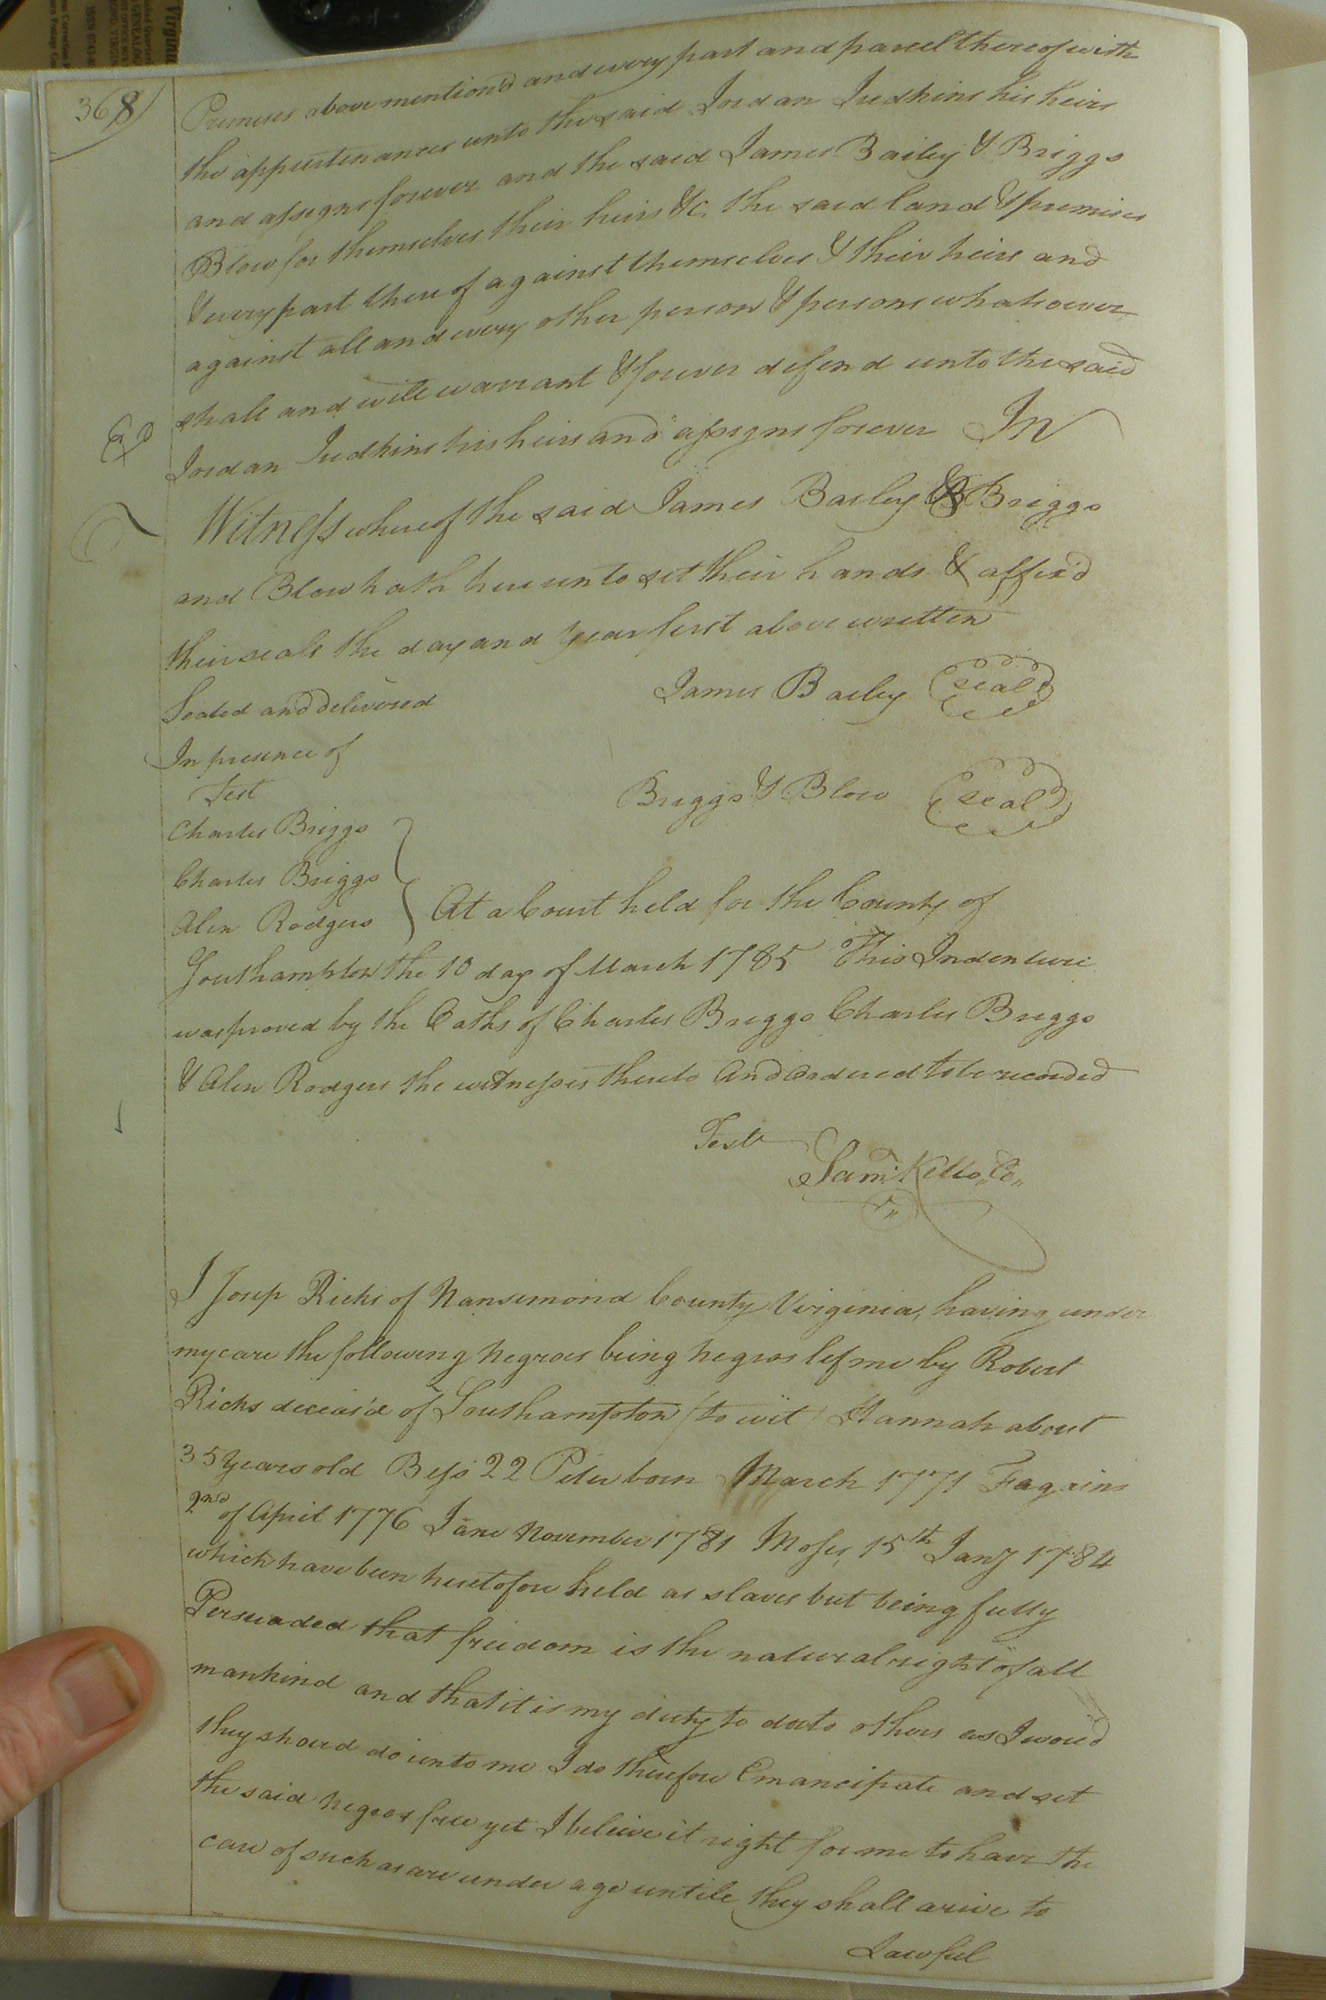 368
Premises above mention'd and every part and parcel thereof with
the appurtenances unto the said Jordan Judkins his heirs
and assigns forever and the said James Bailey & Briggs
Blow for themselves their heirs &c. the said land & premises
& every part there of against themselves & their heirs and
against all and every other person & persons whatsoever
shall and will warrant & forever defend unto the said
Jordan Judkins his heirs and assigns forever In
Witness whereof the said James Bailey & Briggs
and Blow hath here unto set their hands & affix'd
their seals the day and year first above written
Sealed and delivered James Bailey seal
In presence of
Test Briggs & Blow seal
Charles Briggs
Charles Briggs
Alen Rodgers At a Court held for the County of
Southampton the 10 day of March 1785 This Indenture
was proved by the Oaths of Charles Briggs Charles Briggs
& Alen Rodgers the witnesses thereto and ordered to be recorded
Test
Sam Kello Co,,
I Josep Ricks of Nansemond County Virginia, having under
my care the following negroes being negroes lef me by Robert
Ricks deceas'd of Southampton (to wit) Hannah about
35 years old Bess 22 Peter born March 1771 Fagains
2nd of April 1776 Jane November 1781 Moses, 15th Jany 1784
which have been heretofore held as slaves but being fully
Persuaded that freedom is the natural right of all
mankind and that it is my duty to do to others as I would
they should do unto me I do therefore Emancipate and set
the said negroes free yet I believe it right for me to have the
care of such as are under age untile they shall arive to
Lawful